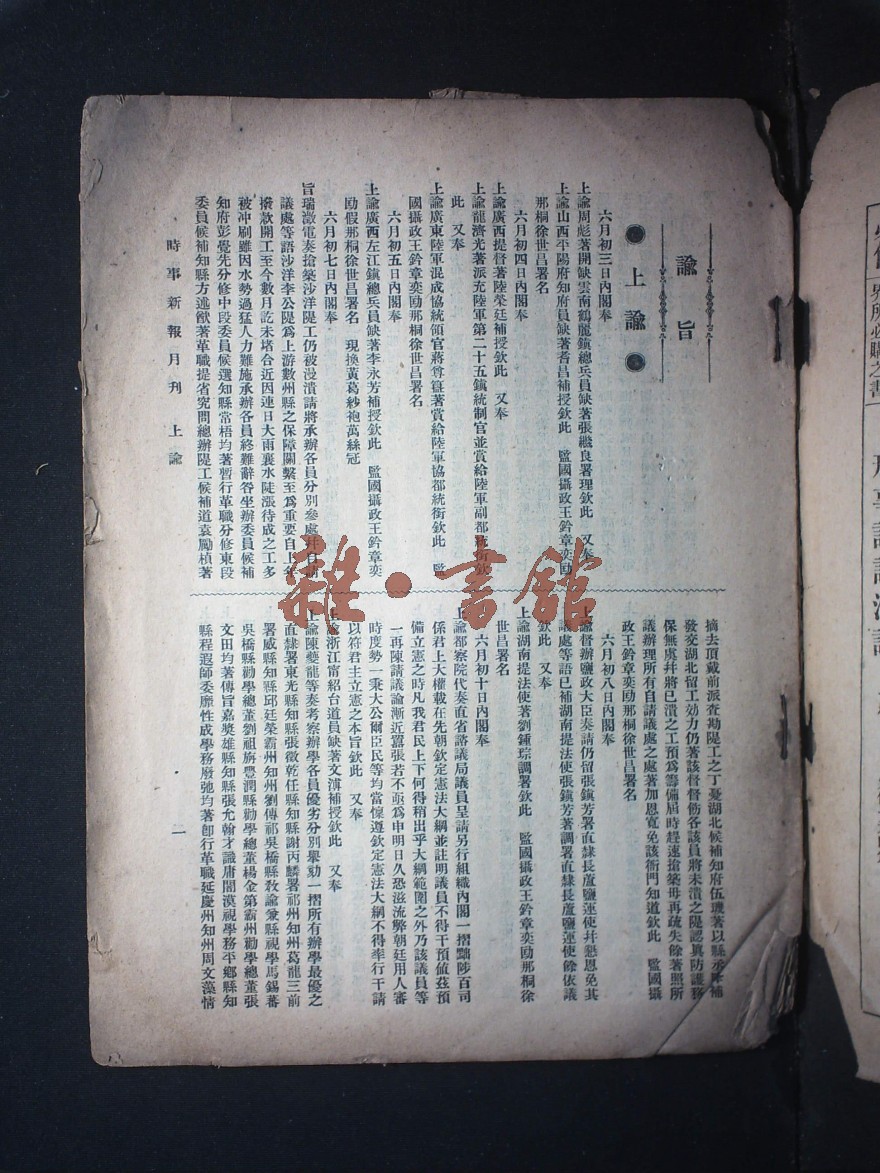 諭旨
上諭
六月初三日內閣奉
上諭周彪著開缺雲南鶴麗鎮總兵員缺著張繼良署理欽此　又奉
上諭山西平陽府知府員缺著耆昌補授欽此　監國攝政王鈐章奕劻
那桐徐世昌署名
六月初四日內閣奉
上諭廣西提督著陸榮廷補授欽此　又奉
上諭龍濟光著派充陸軍第二十五鎮統制官並賞給陸軍副都統銜欽
此　又奉
上諭廣東陸軍混成協統領官蔣尊簋著賞給陸軍協都統銜欽此　監
國攝政王鈐章奕劻那桐徐世昌署名
六月初五日內閣奉
上諭廣西左江鎮總兵員缺著李永芳補授欽此　監國攝政王鈐章奕
劻假那桐徐世昌署名　現換黃葛紗袍萬絲冠
六月初七日內閣奉
旨瑞澂電奏搶築沙洋隄工仍被漫潰請將承辦各員分別參處并自請
議處等語沙洋李公隄爲上游數州縣之保障關繫至爲重要自上年
撥款開工至今數月訖未堵合近因連日大雨襄水陡漲待成之工多
被冲刷雖因水勢過猛人力難施承辦各員終難辭咎坐辦委員候補
知府彭覺先分修中段委員候選知縣常梧均著暫行革職分修東段
委員候補知縣方述猷著革職提省究問總辦隄工候補道袁勵楨著
摘去頂戴前派查勘隄工之丁憂湖北候補知府伍璣著以縣丞降補
發交湖北留工効力仍著該督督飭各該員將未潰之隄認眞防護務
保無虞并將已潰之工預爲籌備屆時趕速搶築毋再疏失餘著照所
議辦理所有自請議處之處著加恩寬免該衙門知道欽此　監國攝
政王鈐章奕劻那桐徐世昌署名
六月初八日內閣奉
上諭督辦鹽政大臣奏請仍留張鎮芳署直隸長蘆鹽運使并懇恩免其
議處等語已補湖南提法使張鎮芳著調署直隸長蘆鹽運使餘依議
欽此　又奉
上諭湖南提法使著劉鍾琮調署欽此　監國攝政王鈐章奕劻那桐徐
世昌署名
六月初十日內閣奉
上諭都察院代奏直省諮議局議員呈請另行組織內閣一摺黜陟百司
係君上大權載在先朝欽定憲法大綱並註明議員不得干預値茲預
備立憲之時凡我君民上下何得稍出乎大綱範圍之外乃該議員等
一再陳請議論漸近囂張若不亟爲申明日久恐滋流弊朝廷用人審
時度勢一秉大公爾臣民等均當懍遵欽定憲法大綱不得率行干請
以符君主立憲之本旨欽此　又奉
上諭浙江甯紹台道員缺著文溥補授欽此　又奉
上諭陳夔龍等奏考察辦學各員優劣分別舉劾一摺所有辦學最優之
直隸署東光縣知縣張徵乾任縣知縣謝丙麟署祁州知州葛龍三前
署威縣知縣邱廷榮霸州知州劉傳祁吳橋縣敎諭兼縣視學馬錫蕃
吳橋縣勸學總董劉祖旂豐潤縣勸學總董楊金第霸州勸學總董張
文田均著傳旨嘉奬雄縣知縣張允翰才識庸闇漠視學務平鄉縣知
縣程遐師委靡性成學務廢弛均著卽行革職延慶州知州周文藻情
時事新報月刊　上諭
一
雜·書館
界所必購之書